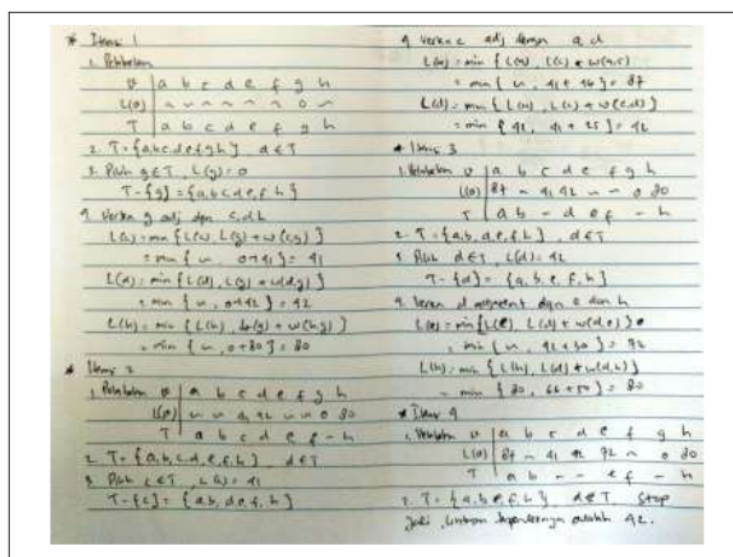 * Iterasi 1
1. Pelabelan
v | a b c d e f g h
L(v) | ∞ ∞ ∞ ∞ ∞ ∞ 0 ∞
T | a b c d e f g h
2. T = {a,b,c,d,e,f,g,h} d ∈ T
3. Pilih g ∈ T, L(g) = 0
T - {g} = {a,b,c,d,e,f,h}
4. Verteks g adj dgn c, d, h
L(c) = min {L(c), L(g) + w(c,g)}
= min {∞, 0+41} = 41
L(d) = min {L(d), L(g) + w(d,g)}
= min {∞, 0+42} = 42
L(h) = min {L(h), L(g) + w(h,g)}
= min {∞, 0+80} = 80
* Iterasi 2
1. Pelabelan v | a b c d e f g h
L(v) | ∞ ∞ 41 42 ∞ ∞ 0 80
T | a b c d e f - h
2. T = {a,b,c,d,e,f,h} d ∈ T
3. Pilih c ∈ T, L(c) = 41
T - {c} = {a,b,d,e,f,h}
4. Verteks c adj dengan a, d
L(a) = min {L(a), L(c) + w(a,c)}
= min {∞, 41+46} = 87
L(d) = min {L(d), L(c) + w(c,d)}
= min {42, 41+25} = 42
* Iterasi 3
1. Pelabelan v | a b c d e f g h
L(v) | 87 ∞ 41 42 ∞ ∞ 0 80
T | a b - d e f - h
2. T = {a,b,d,e,f,h}, d ∈ T
3. Pilih d ∈ T, L(d) = 42
T - {d} = {a,b,e,f,h}
4. d adjacent dgn e dan h
L(e) = min {L(e), L(d) + w(d,e)}
= min {∞, 42+50} = 92
L(h) = min {L(h), L(d) + w(d,h)}
= min {80, +50} = 80
* Iterasi 4
1. Pelabelan v | a b c d e f g h
L(v) | 87 ∞ 41 42 92 ∞ 0 80
T | a b - - e f - h
2. T = {a,b,e,f,h}, d ∉ T, Stop
Jadi, lintasan terpendeknya adalah 42.